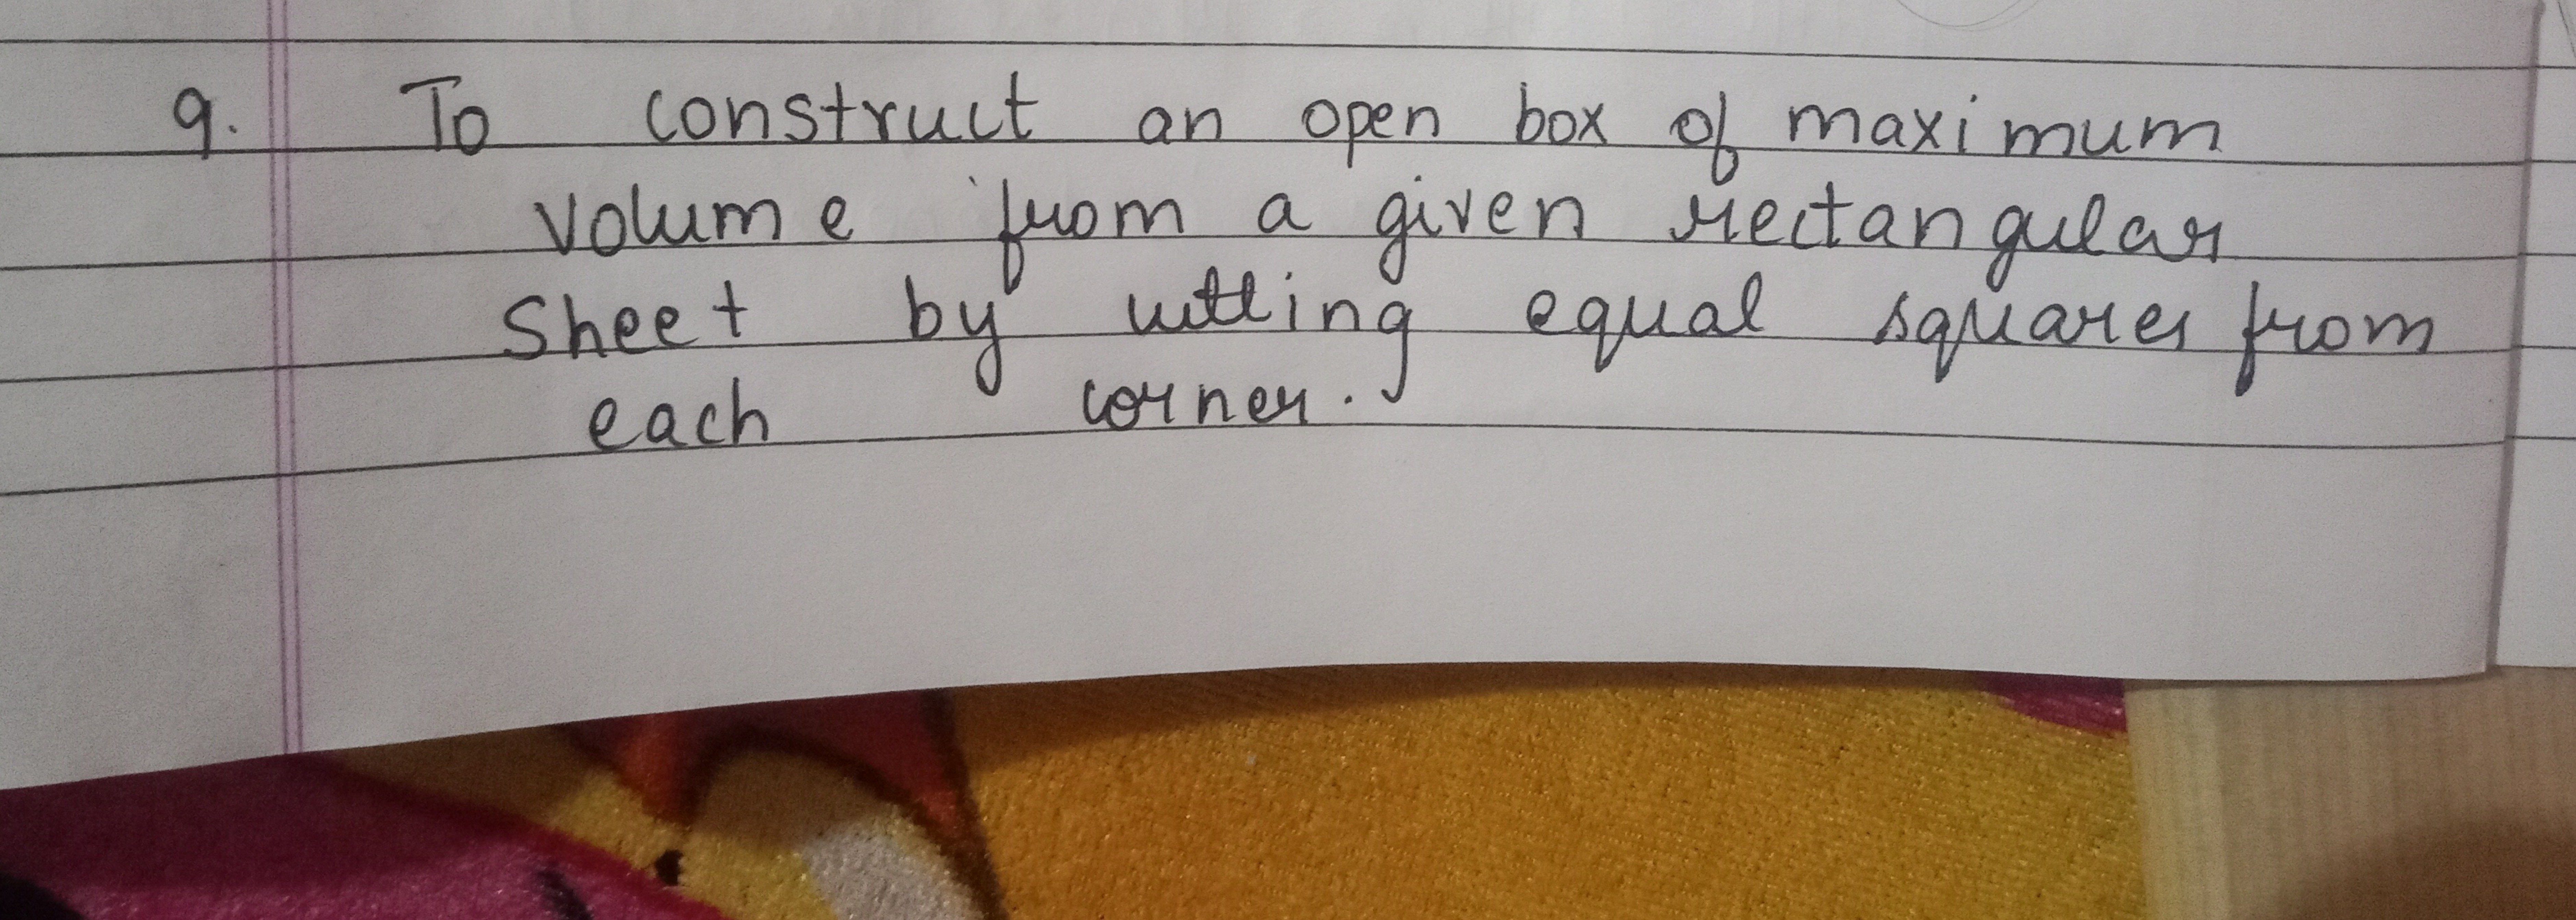 9. To construct an open box of maximum
volume from a given rectangular
Sheet by cutting equal squares from
each corner.